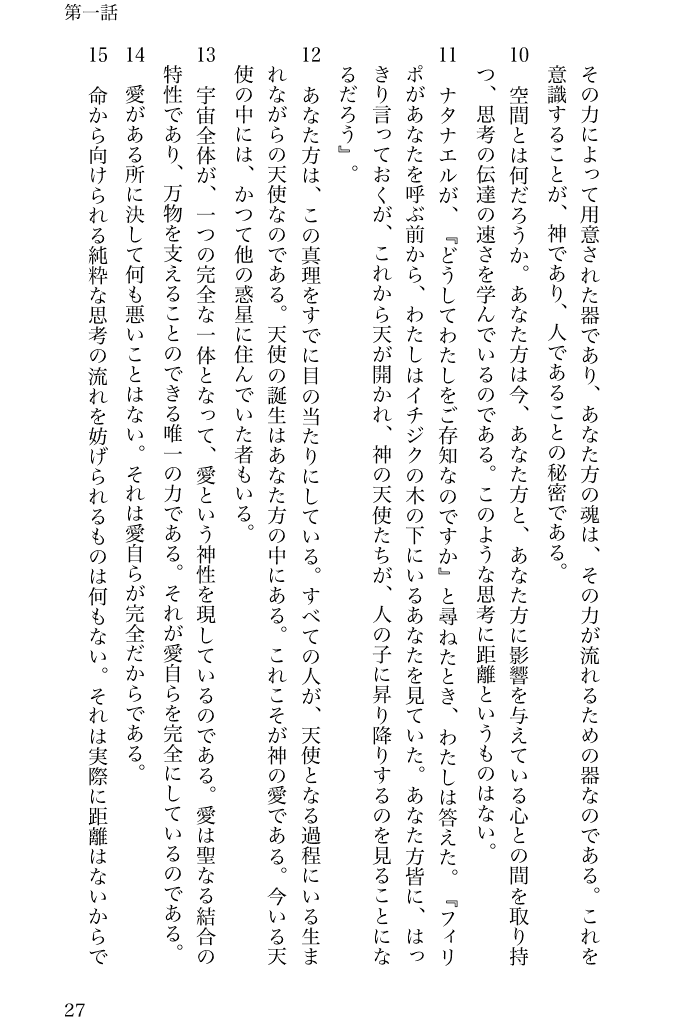 第一話
その力によって用意された器であり、あなた方の魂は、その力が流れるための器なのである。これを
意識することが、神であり、人であることの秘密である。
10　空間とは何だろうか。あなた方は今、あなた方と、あなた方に影響を与えている心との間を取り持
つ、思考の伝達の速さを学んでいるのである。このような思考に距離というものはない。
11　ナタナエルが、『どうしてわたしをご存知なのですか』と尋ねたとき、わたしは答えた。『フィリ
ポがあなたを呼ぶ前から、わたしはイチジクの木の下にいるあなたを見ていた。あなた方皆に、はっ
きり言っておくが、これから天が開かれ、神の天使たちが、人の子に昇り降りするのを見ることにな
るだろう』。
12　あなた方は、この真理をすでに目の当たりにしている。すべての人が、天使となる過程にいる生ま
れながらの天使なのである。天使の誕生はあなた方の中にある。これこそが神の愛である。今いる天
使の中には、かつて他の惑星に住んでいた者もいる。
13　宇宙全体が、一つの完全な一体となって、愛という神性を現しているのである。愛は聖なる結合の
特性であり、万物を支えることのできる唯一の力である。それが愛自らを完全にしているのである。
14　愛がある所に決して何も悪いことはない。それは愛自らが完全だからである。
15　命から向けられる純粋な思考の流れを妨げられるものは何もない。それは実際に距離はないからで
27